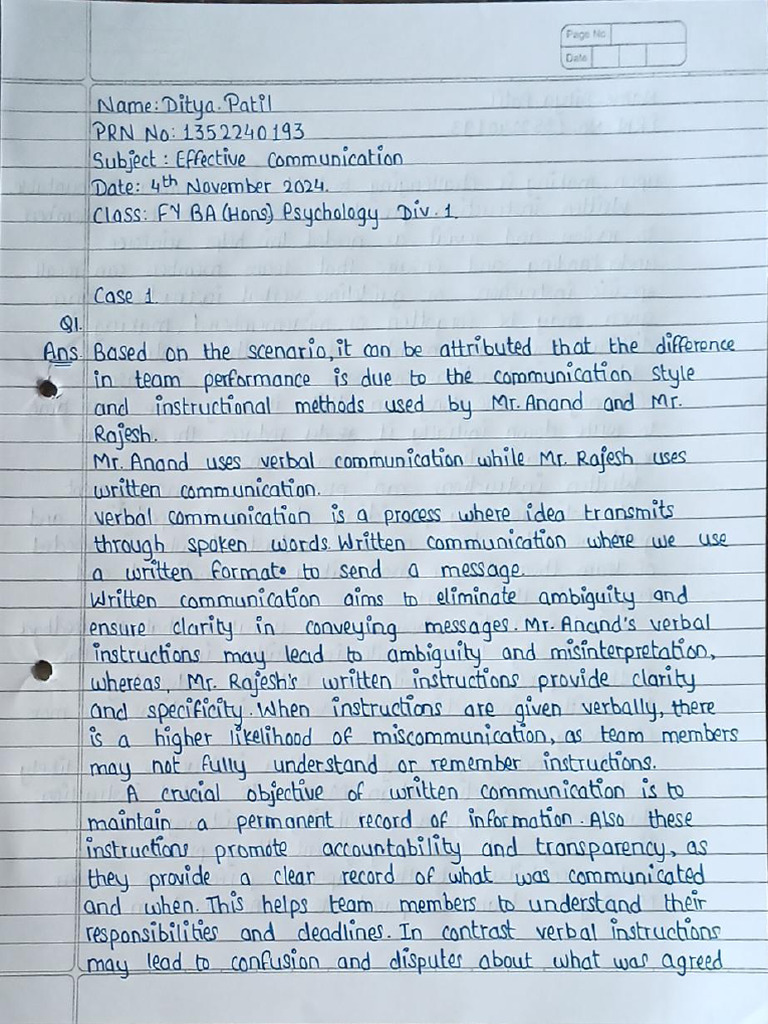 Page No
Date
Name: Ditya. Patil
PRN No: 1352240193
Subject: Effective Communication
Date: 4th November 2024.
Class: FY BA (Hons) Psychology Div. 1.
Case 1
Q1.
Ans. Based on the scenario, it can be attributed that the difference
in team performance is due to the communication style
and instructional methods used by Mr. Anand and Mr.
Rajesh.
Mr. Anand uses verbal communication while Mr. Rajesh uses
written communication.
Verbal communication is a process where idea transmits
through spoken words. Written communication where we use
a written format to send a message.
Written communication aims to eliminate ambiguity and
ensure clarity in conveying messages. Mr. Anand's verbal
instructions may lead to ambiguity and misinterpretation,
whereas, Mr. Rajesh's written instructions provide clarity
and specificity. When instructions are given verbally, there
is a higher likelihood of miscommunication, as team members
may not fully understand or remember instructions.
A crucial objective of written communication is to
maintain a permanent record of information. Also these
instructions promote accountability and transparency, as
they provide a clear record of what was communicated
and when. This helps team members to understand their
responsibilities and deadlines. In contrast verbal instructions
may lead to confusion and disputes about what was agreed